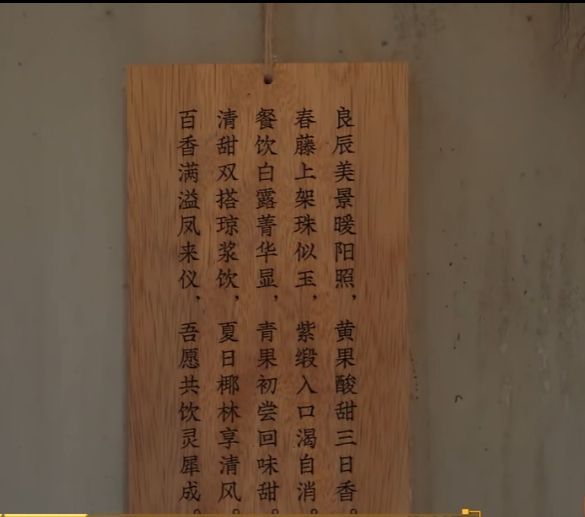 良辰美景暖阳照，黄果酸甜三日香。
春藤上架珠似玉，紫缎入口渴自消。
餐饮白露菁华显，青果初尝回味甜。
清甜双搭琼浆饮，夏日椰林享清风。
百香满溢凤来仪，吾愿共饮灵犀成。